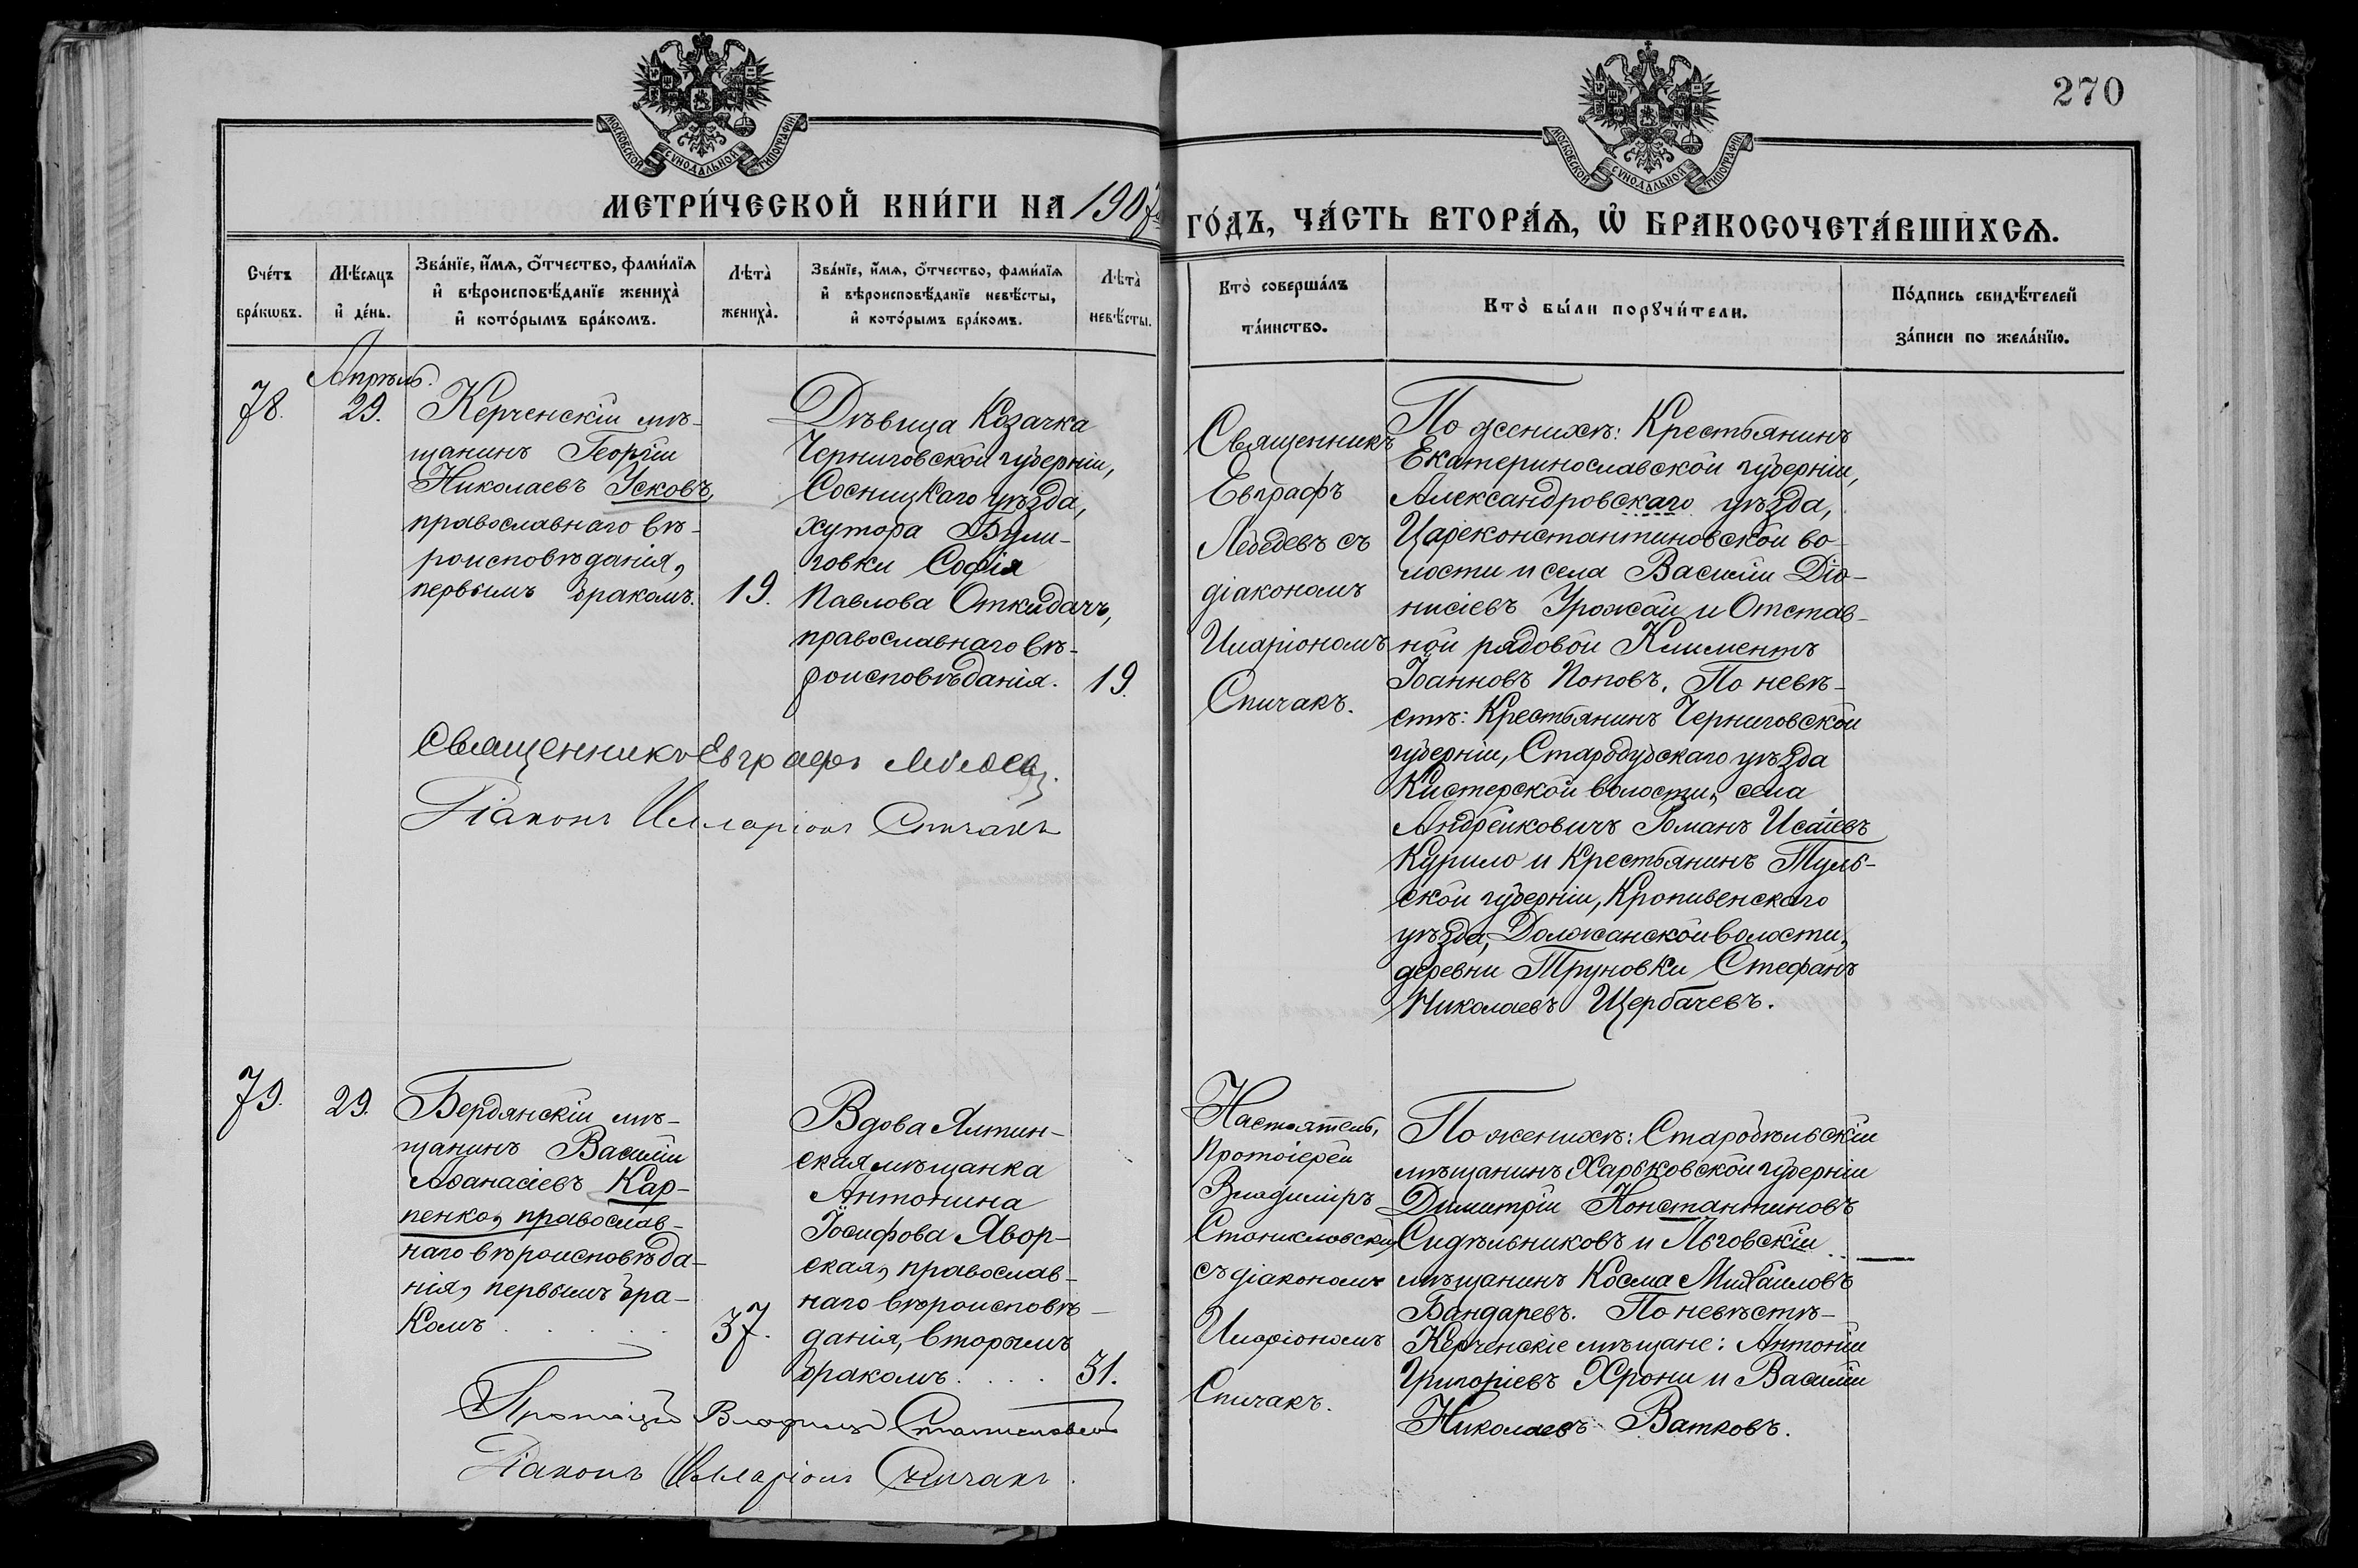 270
МОСКОВСКОЙ СѴНОДАЛЬНОЙ ТИПОГРАФІИ
МОСКОВСКОЙ СѴНОДАЛЬНОЙ ТИПОГРАФІИ
МЕТРИ́ЧЕСКОЙ КНИ́ГИ НА 1907 ГО́ДЪ, ЧА́СТЬ ВТОРА́Ѧ, Ѽ БРАКОСОЧЕТА́ВШИХСѦ.
Сче́тъ бра́кѡвъ.
Мѣ́сяцъ и҆ де́нь.
Зва́нїе, и҆́мѧ, ѻ҆́тчество, фами́лїѧ
и҆ вѣроисповѣ́данїе жениха̀
и҆ кото́рымъ бра́комъ.
Лѣта̀ жениха̀.
Зва́нїе, и҆́мѧ, ѻ҆́тчество, фами́лїѧ
и҆ вѣроисповѣ́данїе невѣ́сты,
и҆ кото́рымъ бра́комъ.
Лѣта̀ невѣ́сты.
Кто̀ соверша́лъ
та́инство.
Кто̀ бы́ли порꙋчи́тели.
По́дпись свидѣ́телей
за́писи по жела́нїю.
78.
Апрѣль.
29.
Керченскій мѣ-
щанинъ Георгій
Николаевъ Усковъ,
православнаго вѣ-
роисповѣданія,
первымъ бракомъ.
19.
Дѣвица Козачка
Черниговской губерніи,
Сосницкаго уѣзда,
хутора Були-
говки Софія
Павлова Откидачъ,
православнаго вѣ-
роисповѣданія.
19.
Священникъ Евграфъ Лебедевъ.
Діаконъ Илларіонъ Спичакъ
Священникъ
Евграфъ
Лебедевъ съ
діакономъ
Иларіономъ
Спичакъ.
По женихѣ: Крестьянинъ
Екатеринославской губерніи,
Александровскаго уѣзда,
Цареконстантиновской во-
лости и села Василій Діо-
нисіевъ Урожай и Отстав-
ной рядовой Климентъ
Іоанновъ Поповъ. По невѣ-
стѣ: Крестьянинъ Черниговской
губерніи, Стародубскаго уѣзда
Кистерской волости, села
Андрейковичъ Романъ Исаіевъ
Курило и Крестьянинъ Туль-
ской губерніи, Кропивенскаго
уѣзда, Должанской волости,
деревни Труновки Стефанъ
Николаевъ Щербачевъ.
79.
29.
Бердянскій мѣ-
щанинъ Василій
Аѳанасіевъ Кар-
пенко, православ-
наго вѣроисповѣда-
нія, первымъ бра-
комъ . . . . .
37.
Вдова Ялтин-
ская мѣщанка
Антонина
Іосифова Явор-
ская, православ-
наго вѣроисповѣ-
данія, вторымъ
бракомъ. . . .
31.
Протоіерей Владиміръ Станиславскій
Діаконъ Илларіонъ Спичакъ.
Настоятель,
Протоіерей
Владиміръ
Станиславскій
съ діакономъ
Иларіономъ
Спичакъ.
По женихѣ: Старобѣльскій
мѣщанинъ Харьковской губерніи
Димитрій Константиновъ
Сидѣльниковъ и Льговскій
мѣщанинъ Косма Михаиловъ
Бандаревъ. По невѣстѣ-
Керченскіе мѣщане: Антоній
Григоріевъ Хрони и Василій
Николаевъ Ватковъ.